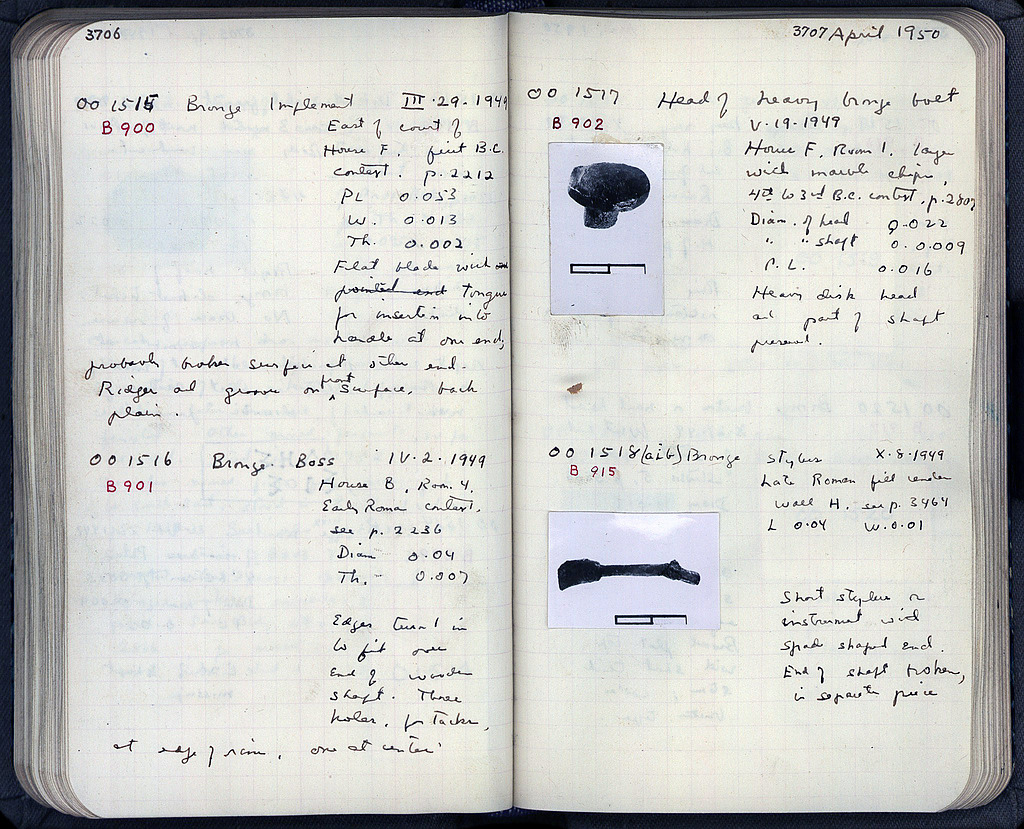 3706
OO 1515 Bronze Implement III·29·1949
B 900
East of court of
House F. first B.C.
context. p. 2212
PL 0.053
W. 0.013
Th. 0.002
Flat blade with
pointed end tongue
for insertion into
handle at one end;
probably broken surface at other end.
Ridges and groove on front surface, back
plain.
OO 1516 Bronze Boss IV·2·1949
B 901
House B, Room 4,
Early Roman context.
see p. 2236
Diam 0.04
Th. - 0.007
Edges turned in
to fit over
end of wooden
shaft. Three
holes, for tacks,
at edge of rim, one at center.
3707 April 1950
OO 1517 Head of heavy bronze bolt
B 902
V·19·1949
House F, Room 1, layer
with marble chips,
4th to 3rd B.C. context, p. 2807
Diam. of head 0.022
" " shaft 0.009
P. L. 0.016
Heavy disk head
and part of shaft
preserved.
OO 1518 (a+b) Bronze stylus X·8·1949
B 915
Late Roman fill under
wall H. see p. 3464
L 0.04 W. 0.01
Short stylus or
instrument with
spade shaped end.
End of shaft broken,
in separate piece